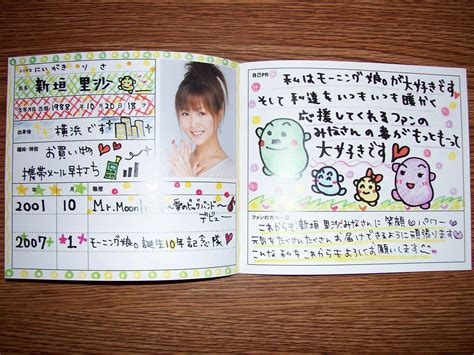 にいがき りさ
新垣 里沙
1988 10月20日 18才
横浜です
お買い物
携帯メール早打ち
2001 10 Mr.Moonlight ~愛のビッグバンド~
デビュー
2007 1 モーニング娘。誕生10年記念隊
自己PR
私はモーニング娘。が大好きです
そして私達をいつもいつも暖かく
応援してくれるファンの
みなさんの事がもっともっと
大好きです
これからも、新垣里沙みなさんに笑顔
元気をたくさんたくさんお届けできるように頑張ります
こんな私をこれからもよろしくお願いします